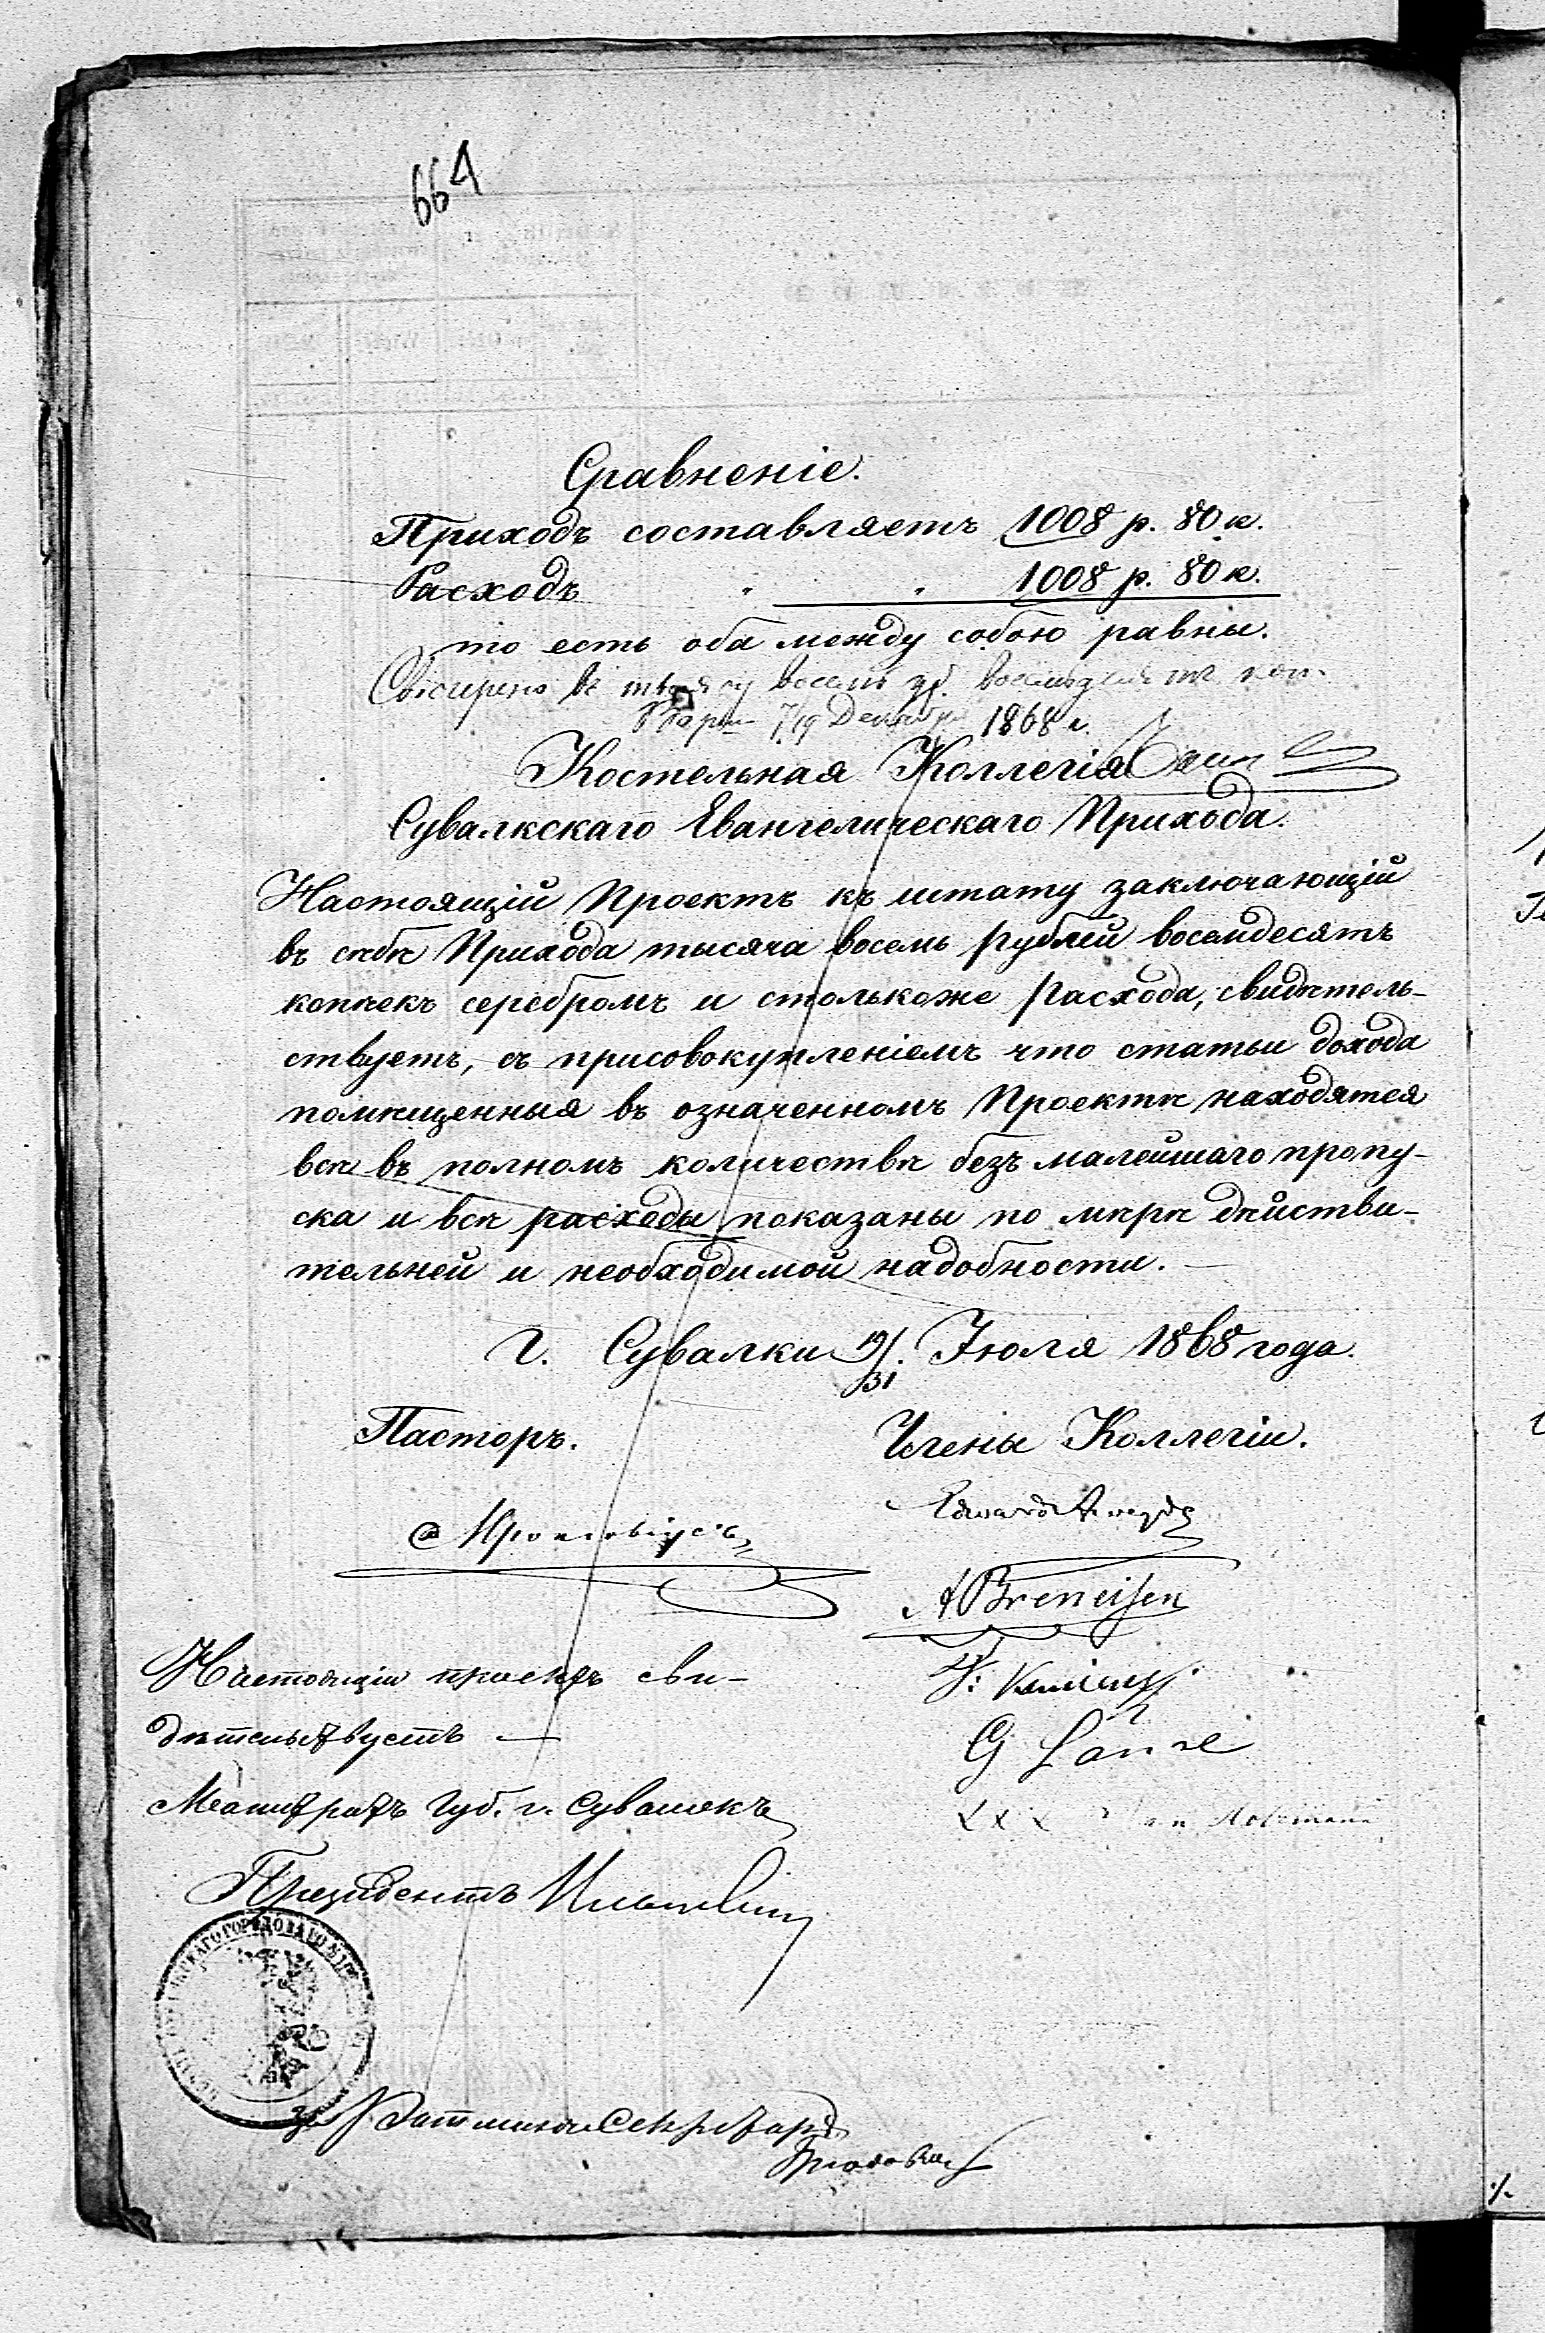 664
Сравненіе.
Приходъ составляетъ 1008 р. 80 к.
Расходъ " " 1008 р. 80 к.
то есть оба между собою равны.
восемь восемьдесят коп.
7/19 Декабря 1868 г.
Костельная Коллегія
Сувалкскаго Евангелическаго Прихода.
Настоящій Проектъ къ штату заключающій
въ себѣ Прихода тысяча восемь рублей восемдесятъ
копѣекъ серебромъ и столькоже Расхода, свидѣтель-
ствуетъ, съ присовокупленіемъ что статьи дохода
помѣщенныя въ означенномъ Проектѣ находятся
всѣ въ полномъ количествѣ безъ малейшаго пропу-
ска и всѣ расходы показаны по мѣрѣ дѣйстви-
тельней и необходимой надобности.
Г. Сувалки 19/31 Іюля 1868 года.
Пасторъ. Члены Коллегіи.
A Breneisen
Настоящій проектъ сви-
дѣтельствуетъ —
G Lanze
Магистратъ Губ. г. Сувалокъ
X X X
Президентъ
Секретарь